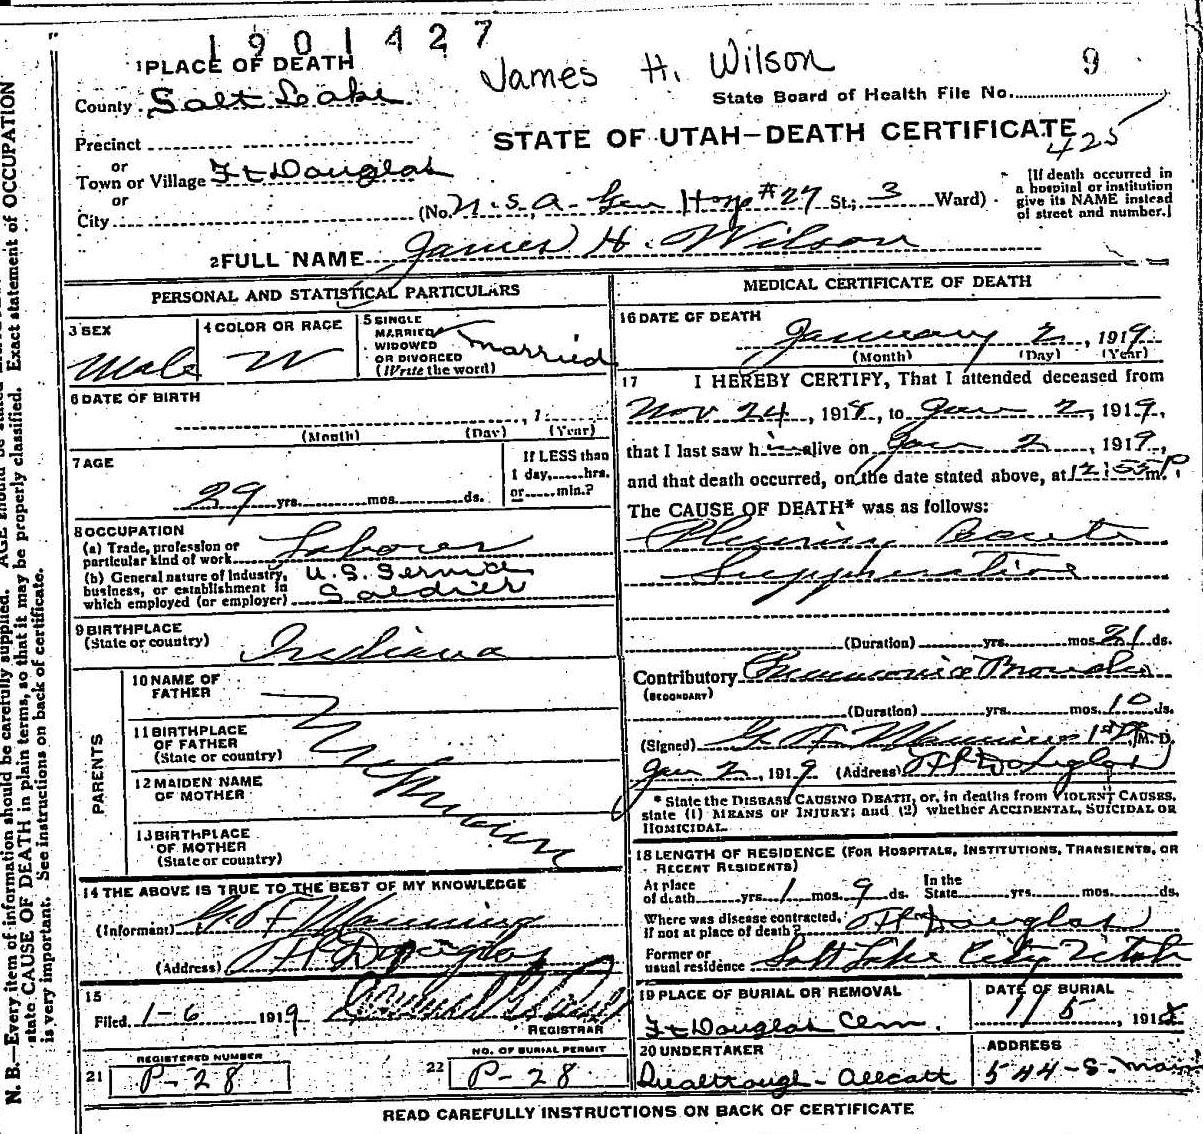 1901427
James H. Wilson
9
1 PLACE OF DEATH
County Salt Lake
State Board of Health File No.
STATE OF UTAH—DEATH CERTIFICATE
425
Precinct
or
Town or Village Ft Douglas
or
City
(No. U.S.A. Gen Hosp #27 St.; 3 Ward)
[If death occurred in
a hospital or institution
give its NAME instead
of street and number.]
2 FULL NAME James H. Wilson
PERSONAL AND STATISTICAL PARTICULARS
3 SEX
Male
4 COLOR OR RACE
W
5 SINGLE
MARRIED
WIDOWED
OR DIVORCED
(Write the word)
Married
6 DATE OF BIRTH
, 1
(Month) (Day) (Year)
7 AGE
29 yrs. mos. ds.
If LESS than
1 day, hrs.
or min.?
8 OCCUPATION
(a) Trade, profession or
particular kind of work Laborer
(b) General nature of Industry,
business, or establishment in
which employed (or employer)
U.S. Service
Soldier
9 BIRTHPLACE
(State or country) Indiana
PARENTS
10 NAME OF
FATHER
11 BIRTHPLACE
OF FATHER
(State or country)
12 MAIDEN NAME
OF MOTHER
13 BIRTHPLACE
OF MOTHER
(State or country)
Unknown
14 THE ABOVE IS TRUE TO THE BEST OF MY KNOWLEDGE
(Informant) G. F. Manning
(Address) Ft Douglas
15
Filed 1-6 1919
REGISTRAR
21 REGISTERED NUMBER
P-28
22 NO. OF BURIAL PERMIT
P-28
MEDICAL CERTIFICATE OF DEATH
16 DATE OF DEATH
January 2, 1919
(Month) (Day) (Year)
17 I HEREBY CERTIFY, That I attended deceased from
Nov 24, 1918, to Jan 2, 1919,
that I last saw him alive on Jan 2, 1919,
and that death occurred, on the date stated above, at 12:55 P m.
The CAUSE OF DEATH* was as follows:
Pleurisy Acute
Suppurative
(Duration) yrs. mos. 21 ds.
Contributory Pneumonia Broncho
(SECONDARY)
(Duration) yrs. mos. 10 ds.
(Signed) G. F. Manning 1st Lt, M. D.
Jan 2, 1919 (Address) Ft Douglas
* State the DISEASE CAUSING DEATH, or, in deaths from VIOLENT CAUSES,
state (1) MEANS OF INJURY; and (2) whether ACCIDENTAL, SUICIDAL OR
HOMICIDAL.
18 LENGTH OF RESIDENCE (FOR HOSPITALS, INSTITUTIONS, TRANSIENTS, OR
RECENT RESIDENTS)
At place
of death yrs. 1 mos. 9 ds.
In the
State yrs. mos. ds.
Where was disease contracted,
if not at place of death? Ft Douglas
Former or
usual residence Salt Lake City Utah
19 PLACE OF BURIAL OR REMOVAL
Ft Douglas Cem.
DATE OF BURIAL
1/5, 191
20 UNDERTAKER
ADDRESS
544-S-Main
READ CAREFULLY INSTRUCTIONS ON BACK OF CERTIFICATE
N. B.—Every item of information should be carefully supplied. AGE should be stated Exact statement of OCCUPATION
state CAUSE OF DEATH in plain terms, so that it may be properly classified.
is very important. See instructions on back of certificate.